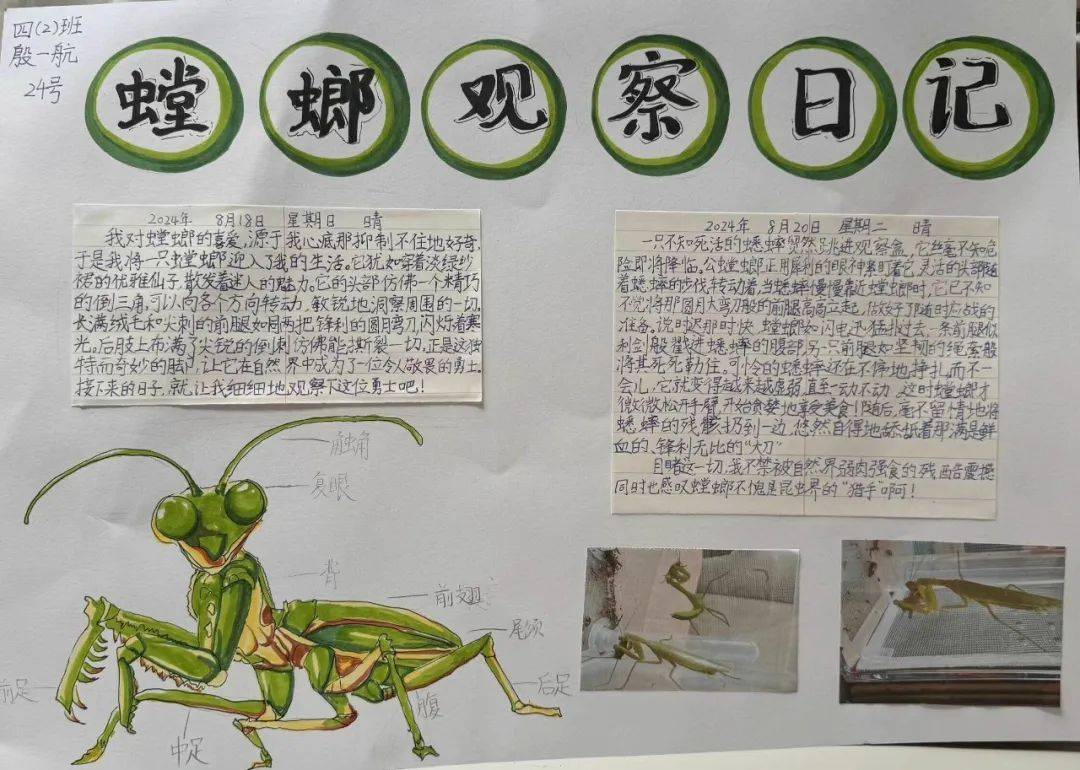 四(2)班
殷一航
24号
螳螂观察日记
2024年 8月18日 星期日 晴
我对螳螂的喜爱,源于我心底那抑制不住地好奇,
于是我将一只螳螂迎入了我的生活。它犹如穿着淡绿纱
裙的优雅仙子,散发着迷人的魅力。它的头部仿佛一个精巧
的倒三角,可以向各个方向转动,敏锐地洞察周围的一切。
长满绒毛和尖刺的前腿如同两把锋利的圆月弯刀,闪烁着寒
光。后肢上布满了尖锐的倒刺,仿佛能撕裂一切,正是这独
特而奇妙的脚,让它在自然界中成为了一位令人敬畏的勇士。
接下来的日子,就让我细细地观察下这位勇士吧!
2024年 8月20日 星期二 晴
一只不知死活的蟋蟀贸然跳进观察盒,它丝毫不知危
险即将降临。公螳螂正用犀利的眼神紧盯着它,灵活的头部随
着蟋蟀的步伐转动着,当蟋蟀慢慢靠近螳螂时,它已不知
不觉将那圆月大弯刀般的前腿高高立起,做好了随时应战的
准备。说时迟那时快,螳螂如闪电迅猛扑过去,一条前腿似
利剑般戳进蟋蟀的腹部,另一只前腿如坚韧的绳索般
将其死死勒住。可怜的蟋蟀还在不停地挣扎,而不一
会儿,它就变得越来越虚弱,直至一动不动,这时螳螂才
微微松开手臂,开始贪婪地享受美食!随后,毫不留情地将
蟋蟀的残骸扔到一边,悠然自得地舔舐着那满是鲜
血的、锋利无比的“大刀”
目睹这一切,我不禁被自然界弱肉强食的残酷震撼
同时也感叹螳螂不愧是昆虫界的“猎手”啊!
触角
复眼
背
前翅
尾须
前足
后足
腹
中足